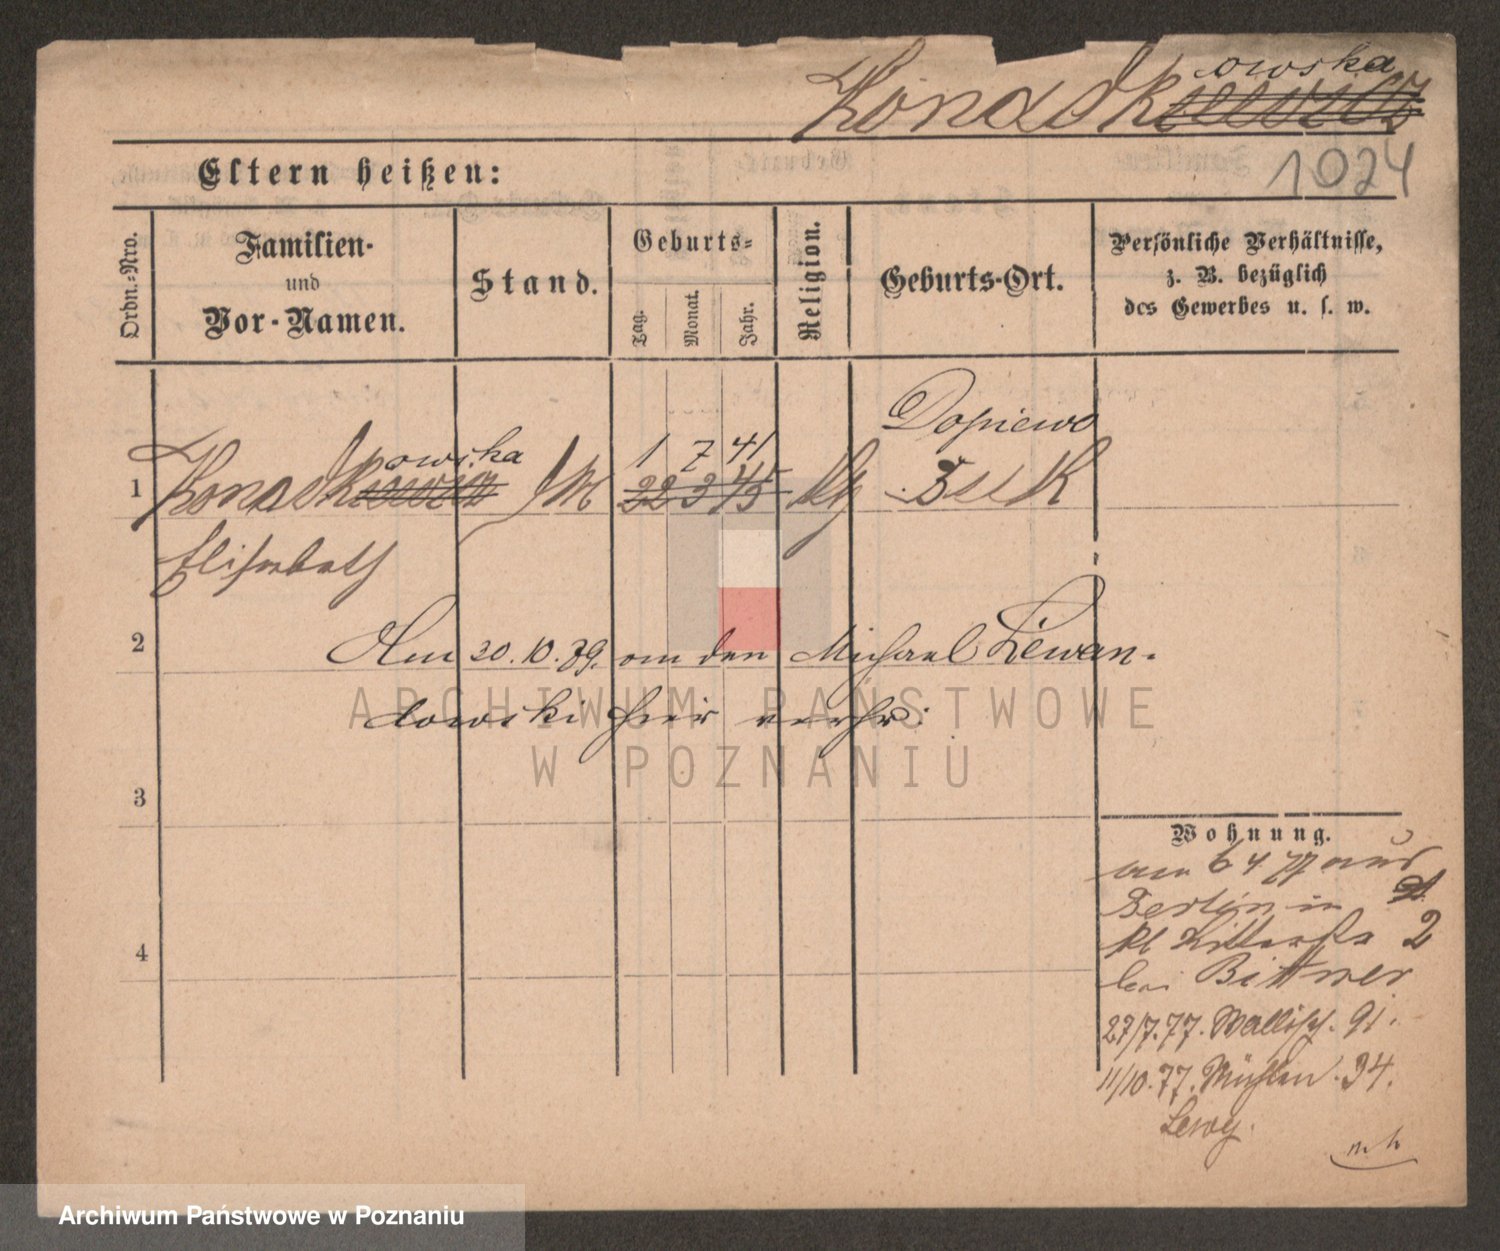 Konaskiewicz owska
1024
Eltern heißen:
Ordn.-Nro.
Familien-
und
Vor-Namen.
Stand.
Geburts-
Tag.
Monat.
Jahr.
Religion.
Geburts-Ort.
Persönliche Verhältnisse,
z. B. bezüglich
des Gewerbes u. s. w.
Dopiewo
owska 1 7 41
1 Konaskiewicz 22 3 45 Buk
Elisabeth
2 Am 20.10.79. an den Michael Lewan-
dowski hier verhr:
3
4
Wohnung.
am 6 4 77 aus
Berlin in
kl Ritterstr 2
bei Bittner
27/7.77. Wallisch. 91.
11/10.77. Mühlen. 34.
Lewy.
ARCHIWUM PAŃSTWOWE
W POZNANIU
Archiwum Państwowe w Poznaniu